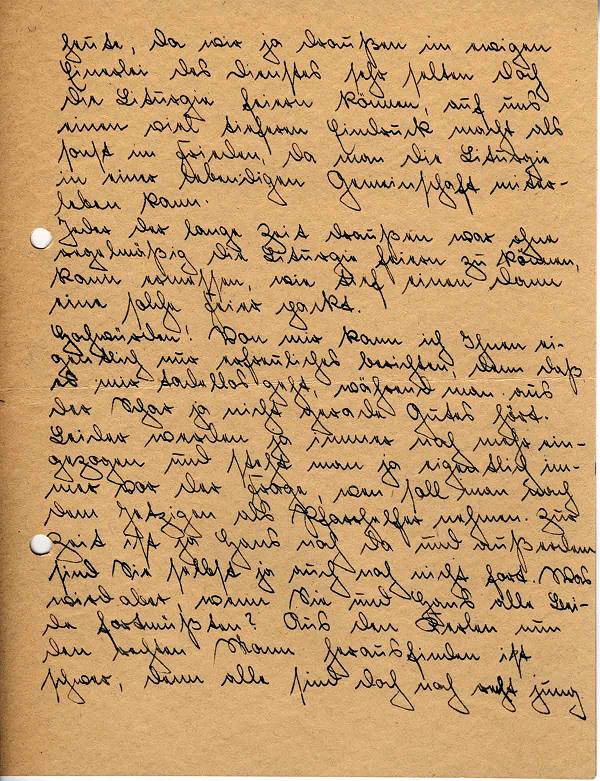 heute, da wir ja draußen im ewigen
Einerlei des Dienstes sehr selten doch
die Liturgie feiern können, auf uns
einen viel tieferen Eindruck macht als
sonst im Frieden, da man die Liturgie
in einer lebendigen Gemeinschaft miter-
leben kann.
Jeder der lange Zeit draußen war ohne
regelmäßig die Liturgie feiern zu können,
kann ermessen, wie tief einen dann
eine solche Feier packt.
Hochwürden! Von mir kann ich Ihnen ei-
gentlich nur erfreuliches berichten, denn daß
es mir tadellos geht, während man aus
der Schar ja nicht gerade Gutes hört.
Leider werden ja immer noch mehr ein-
gezogen und steht man ja eigentlich im-
mer vor der Frage, wen soll man nach
dem Jetzigen als Pfarrhelfer nehmen. Zur
Zeit ist ja Hans noch da und außerdem
sind Sie selbst ja auch noch nicht fort. Was
wird aber, wenn Sie und Hans alle Bei-
de fortmüßten? Aus den Kerlen nun
den rechten Mann herausfinden ist
schwer, denn alle sind doch noch recht jung